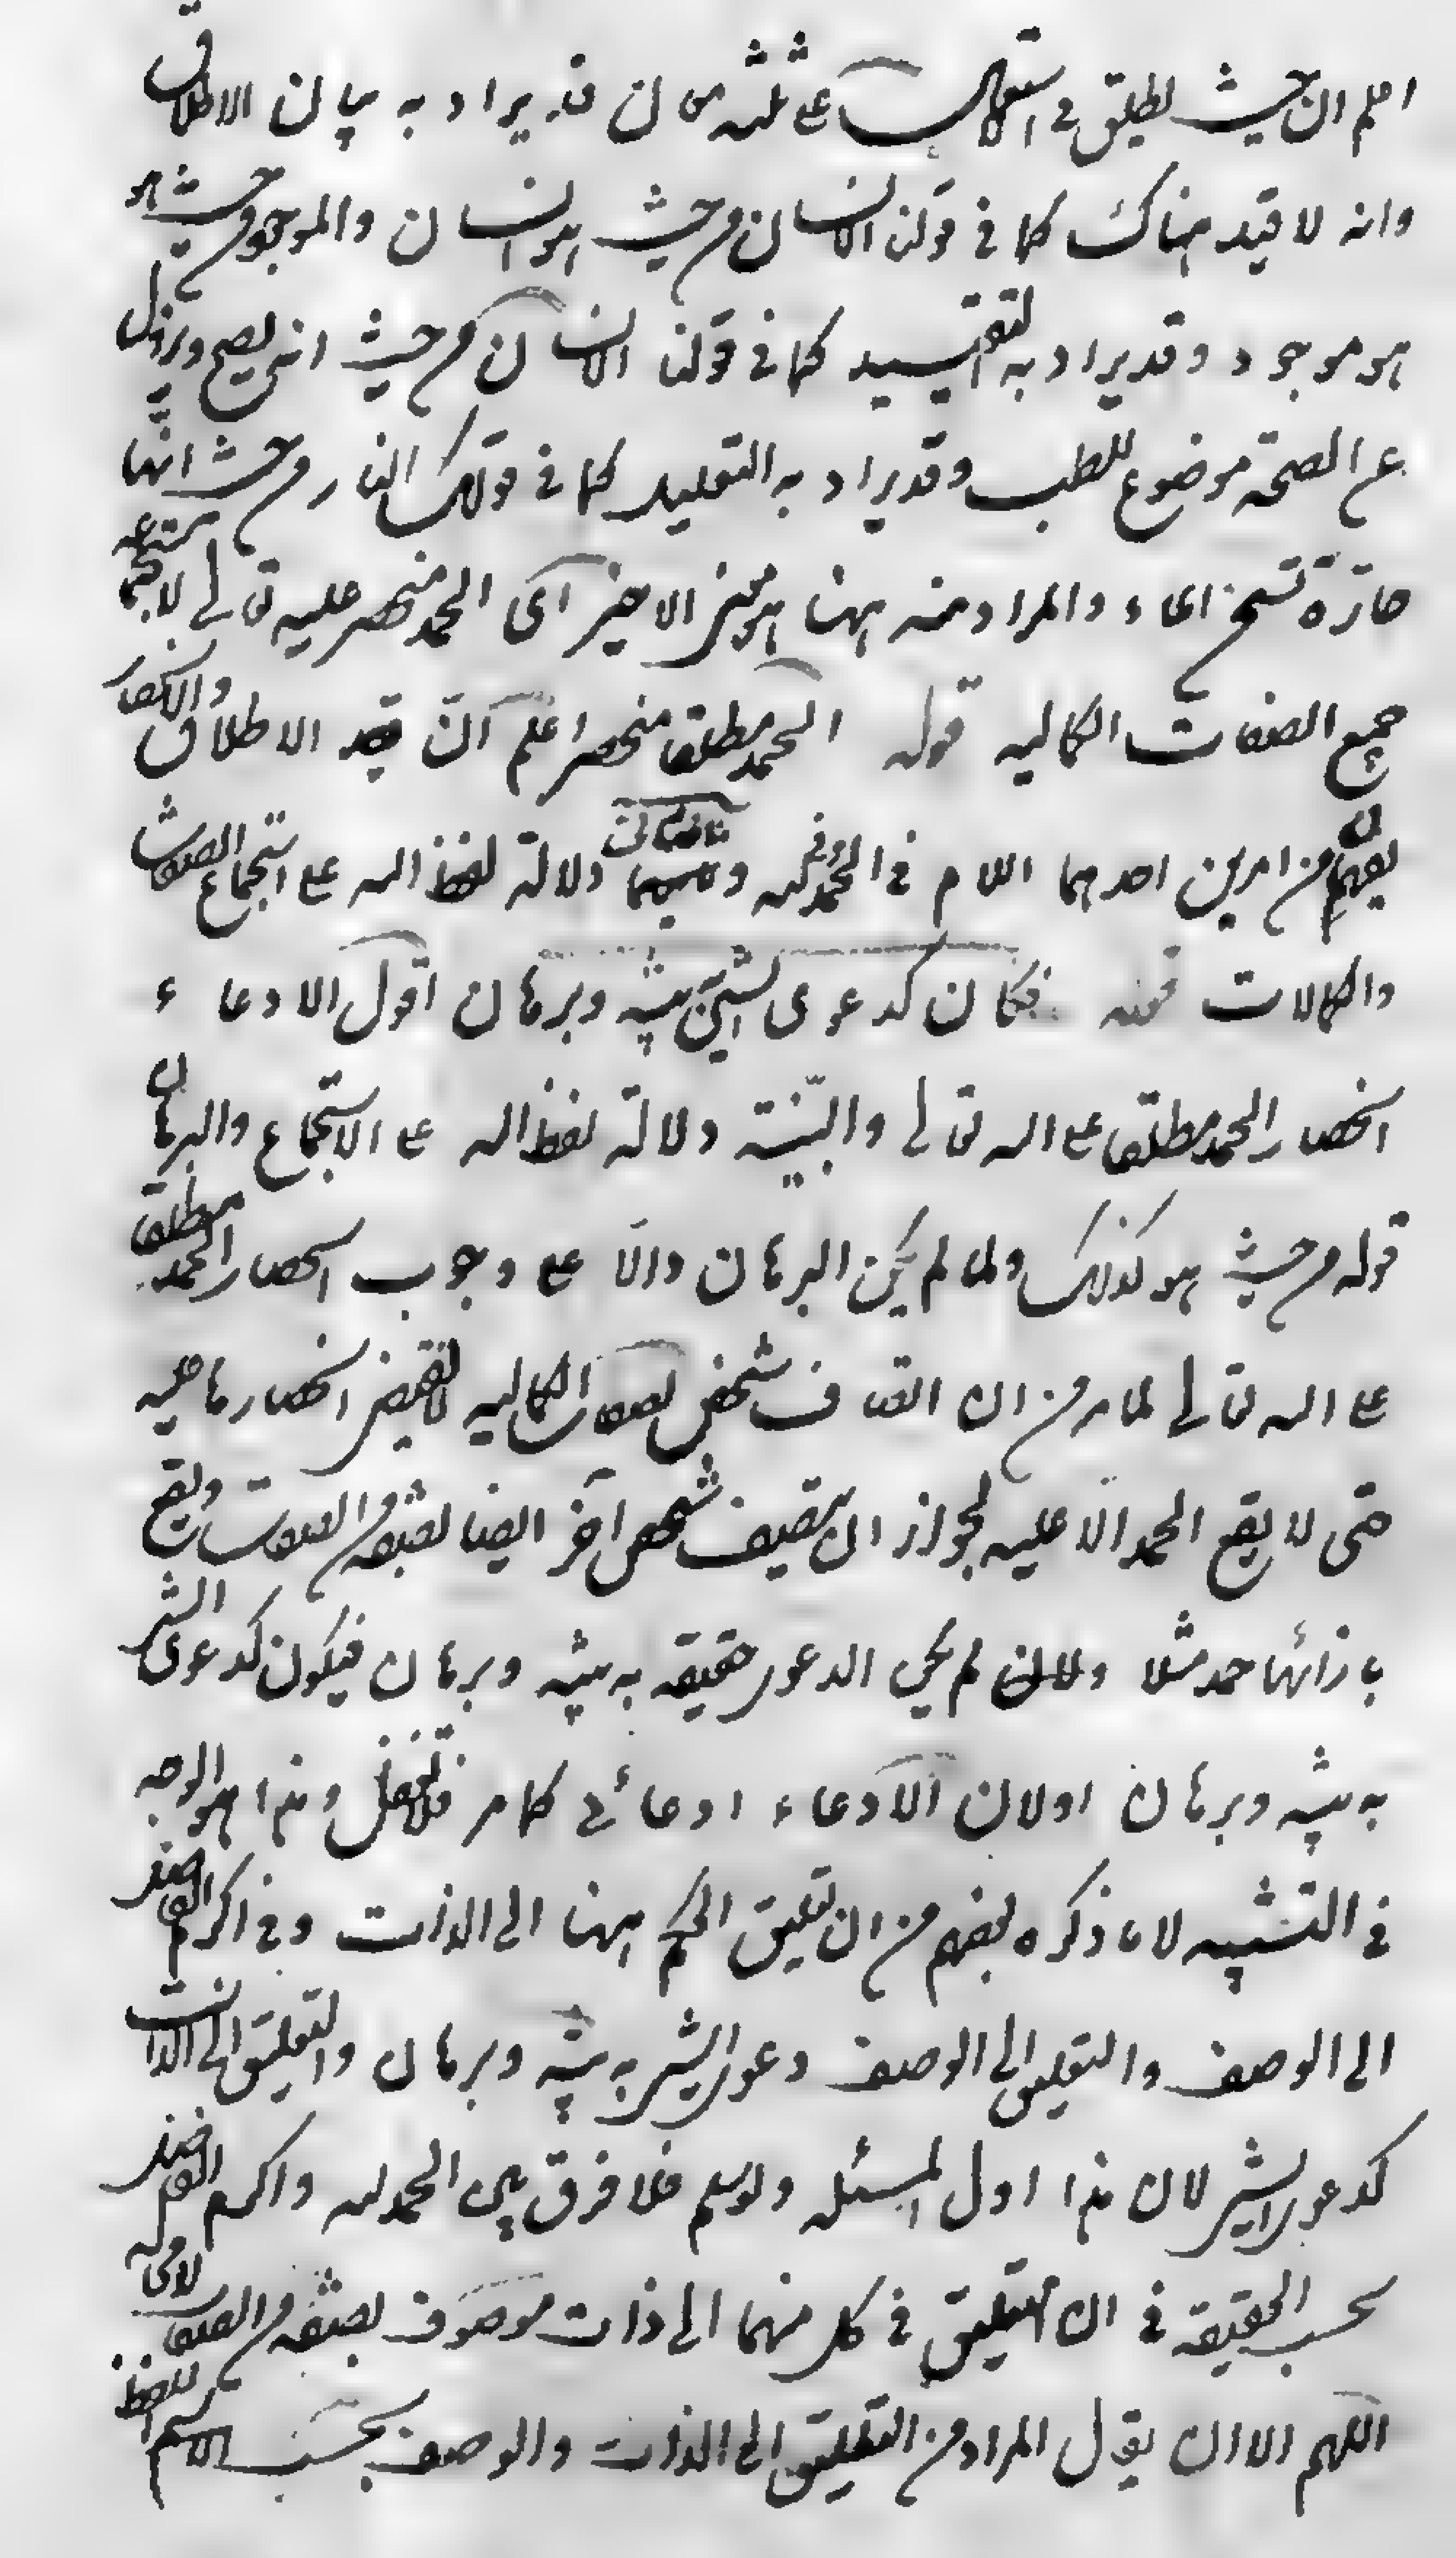 اعلم ان حيث يطلق في استعمالاتهم على ثلثة معان قد يراد به بيان الاطلاق
وانه لا قيد هناك كما في قولنا الانسان من حيث هو انسان والموجود من حيث هو
هو موجود وقد يراد به التقييد كما في قولنا الانسان من حيث انه يصح ويزول
عن الصحة موضوع للطب وقد يراد به التعليل كما في قولك النار من حيث انها
حارة تسخن الماء والمراد منه ههنا هو معنى الاخير اى الحمد منحصر عليه تعالى لاستجماعه
جميع الصفات الكماليه قوله الحمد مطلقا منحصرا علم ان قيد الاطلاق والانحصار
يفهم من امرين احدهما اللام في الحمد وفي لله وثانيهما دلالة لفظ الله على استجماع الصفات
والكمالات قوله فكان كدعوى الشئ ببينة وبرهان اقول الادعاء
انحصار الحمد مطلقا على الله تعالى والبينة دلالة لفظ الله على الاستجماع والبرهان
قوله من حيث هو كذلك ولما لم يكن البرهان دالا على وجوب انحصار الحمد مطلقا
على الله تعالى لما مر من ان اتصاف شخص بصفات الكماليه لا يقتضى انحصارها عليه
حتى لا يقع الحمد الا عليه لجواز ان يتصف شخص آخر ايضا بصفة من الصفات ويقع
بازائها حمد مثلا ولان لم يكن الدعوى حقيقة به بينه وبرهان فيكون كدعوى الشئ
به بينه وبرهان اولان الادعاء ادعائى كما مر فلا تغفل وهذا هو الوجه
في التشبيه لا ما ذكره بعضهم من ان تعليق الحكم ههنا الى الذات وفي اكرم
الى الوصف والتعليق الى الوصف دعوى الشئ به بينه وبرهان والتعليق الى الذات
كدعوى الشئ لان هذا اول المسئله ولو سلم فلا فرق بين الحمد لله واكرم
بحسب الحقيقة في ان التعليق في كل منهما الى ذات موصوف بصفة من الصفات
اللهم الا ان يقال المراد من التعليق الى الذات والوصف بحسب الاسم